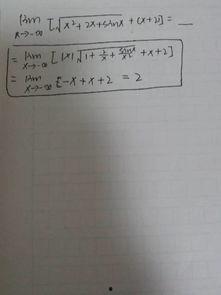 lim [√x²+2x+sinx + (x+2)] = __
x→-∞
= lim [|x|√1+2/x+sinx/x² +x+2]
x→-∞
= lim [-x+x+2 = 2
x→-∞